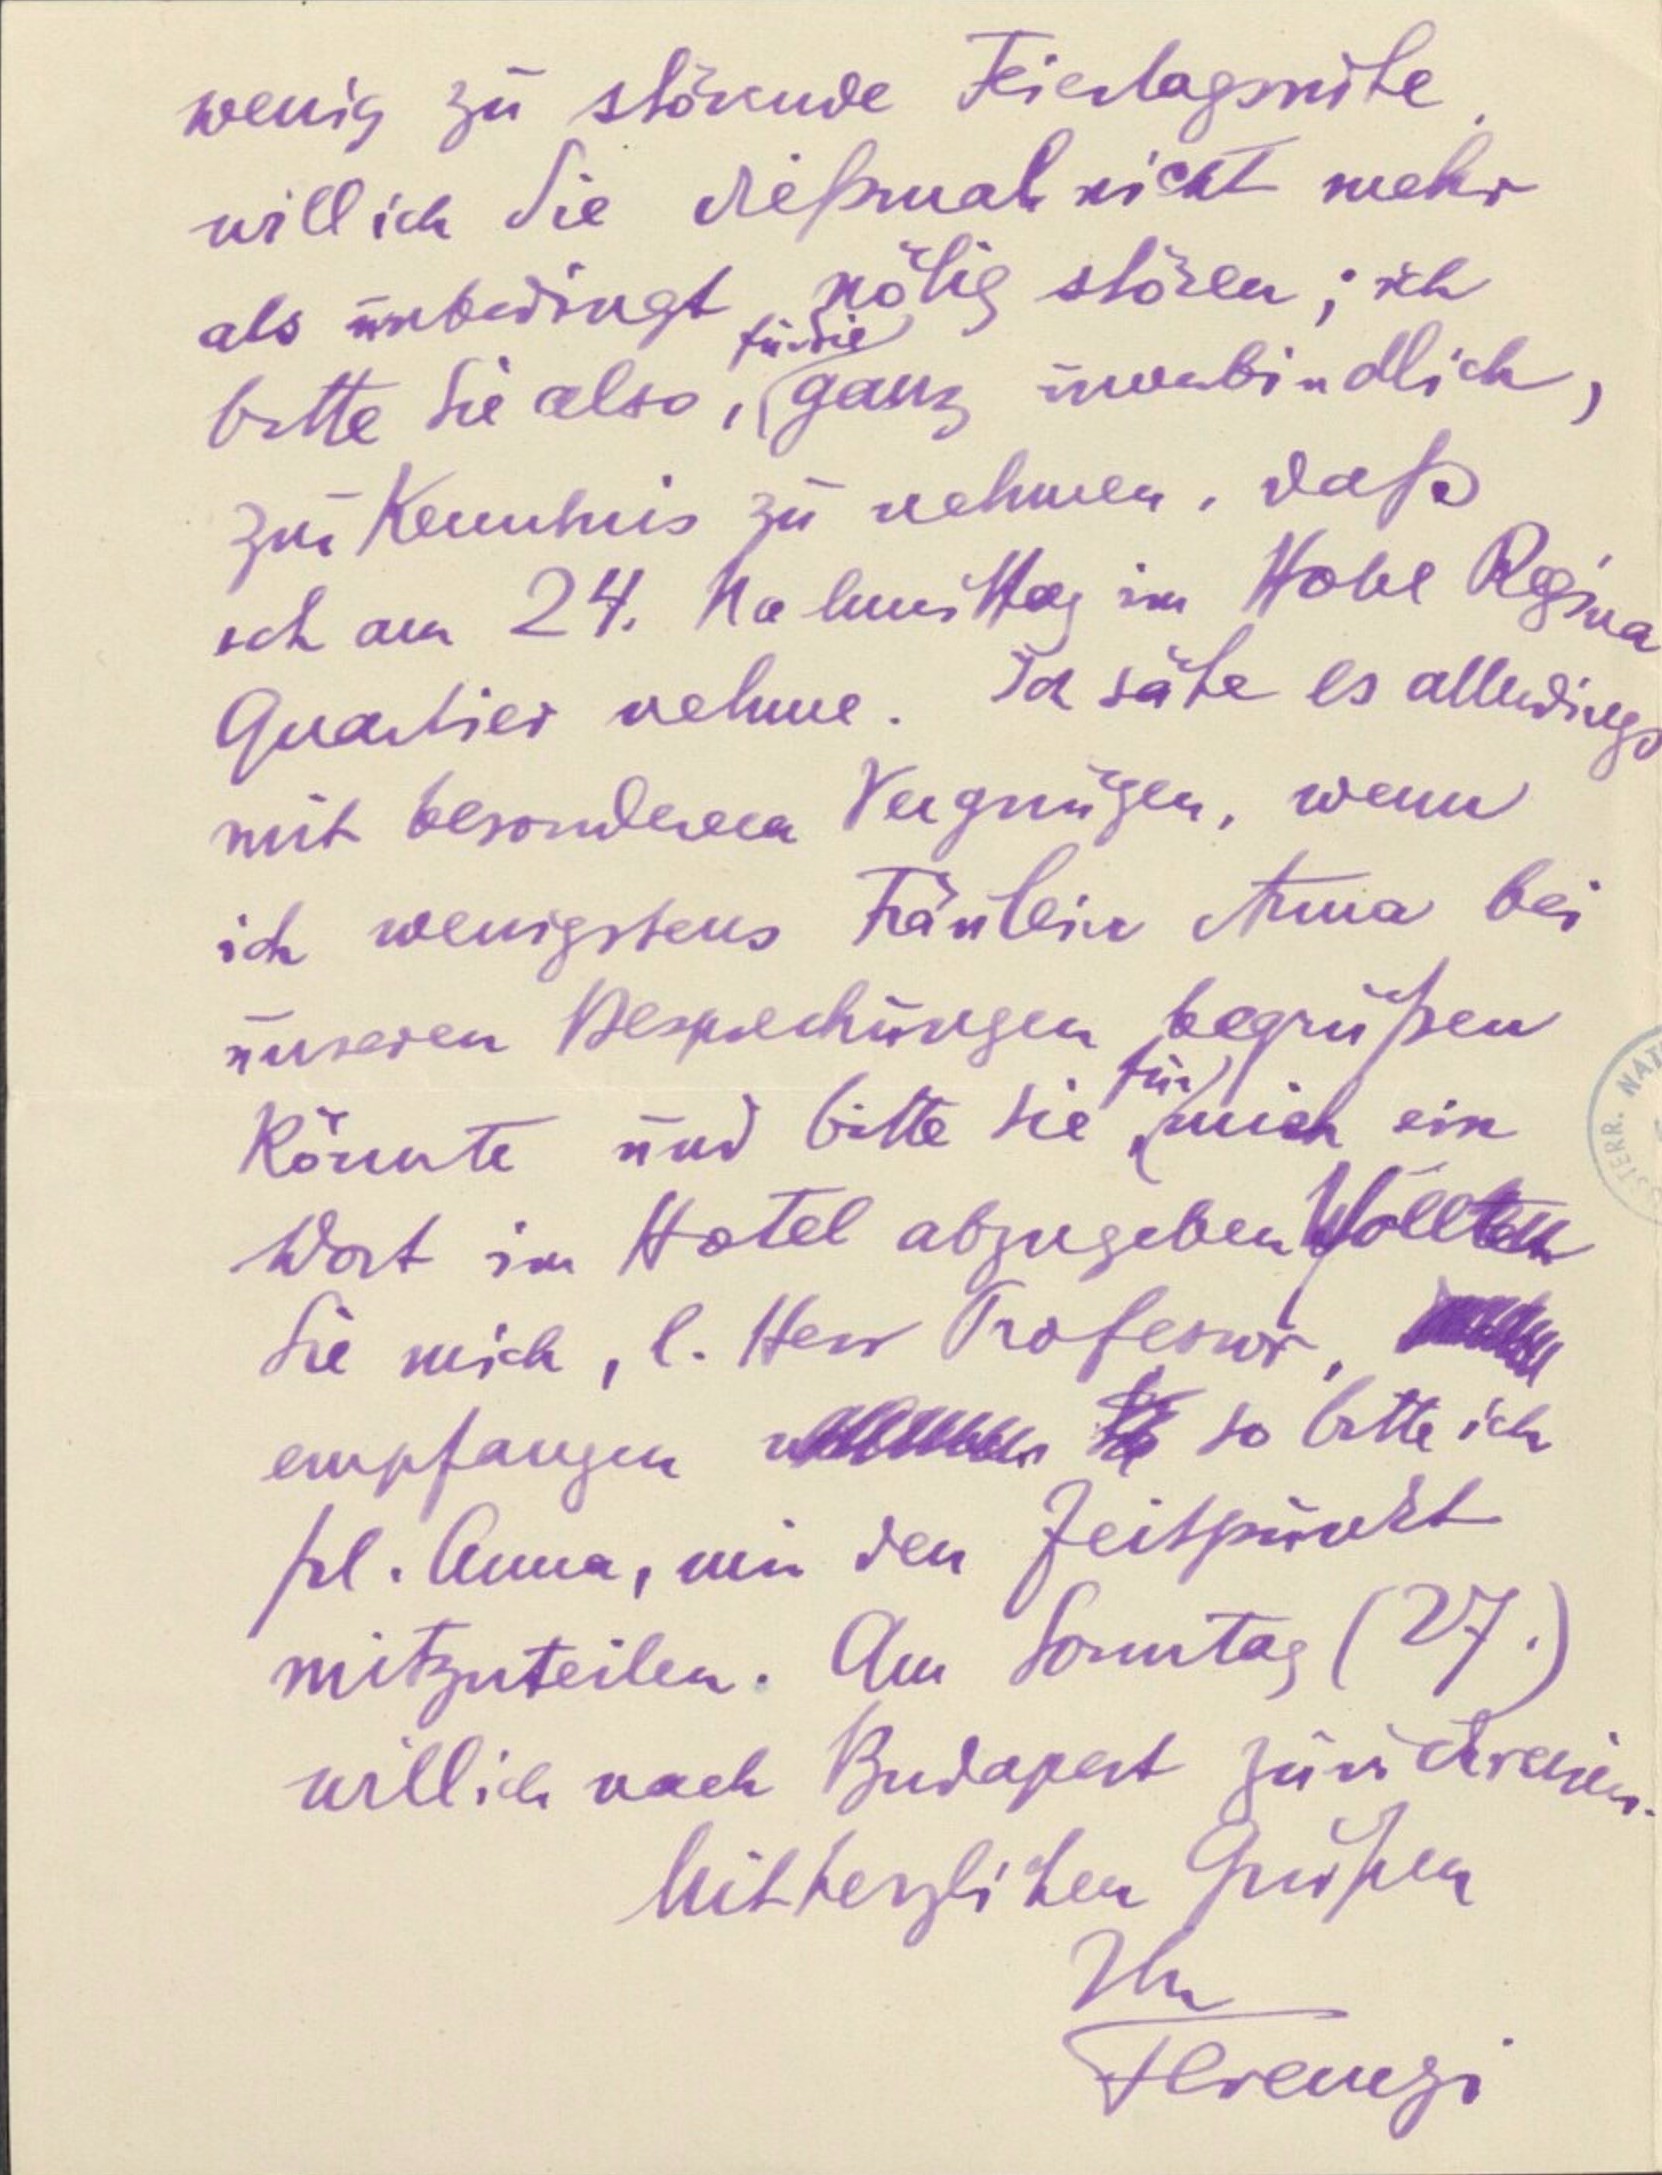 wenig zu störende Feiertagsruhe.
will ich Sie dießmal nicht mehr
als unbedingt nötig stören; ich
für Sie
bitte Sie also, ganz unverbindlich,
zur Kenntnis zu nehmen, daß
ich am 24. Nachmittag im Hotel Regina
Quartier nehme. Ich sähe es allerdings
mit besonderem Vergnügen, wenn
ich wenigstens Fräulein Anna bei
unseren Besprechungen begrüßen
für
könnte und bitte sie mich ein
Wort im Hotel abzugeben Wollten
Sie mich, l. Herr Professor,
empfangen so bitte ich
frl. Anna, mir den Zeitpunkt
mitzuteilen. Am Sonntag (27.)
will ich nach Budapest zurückreisen.
Mit herzlichen Grüßen
Ihr
Ferenczi
ÖSTERR. NAT